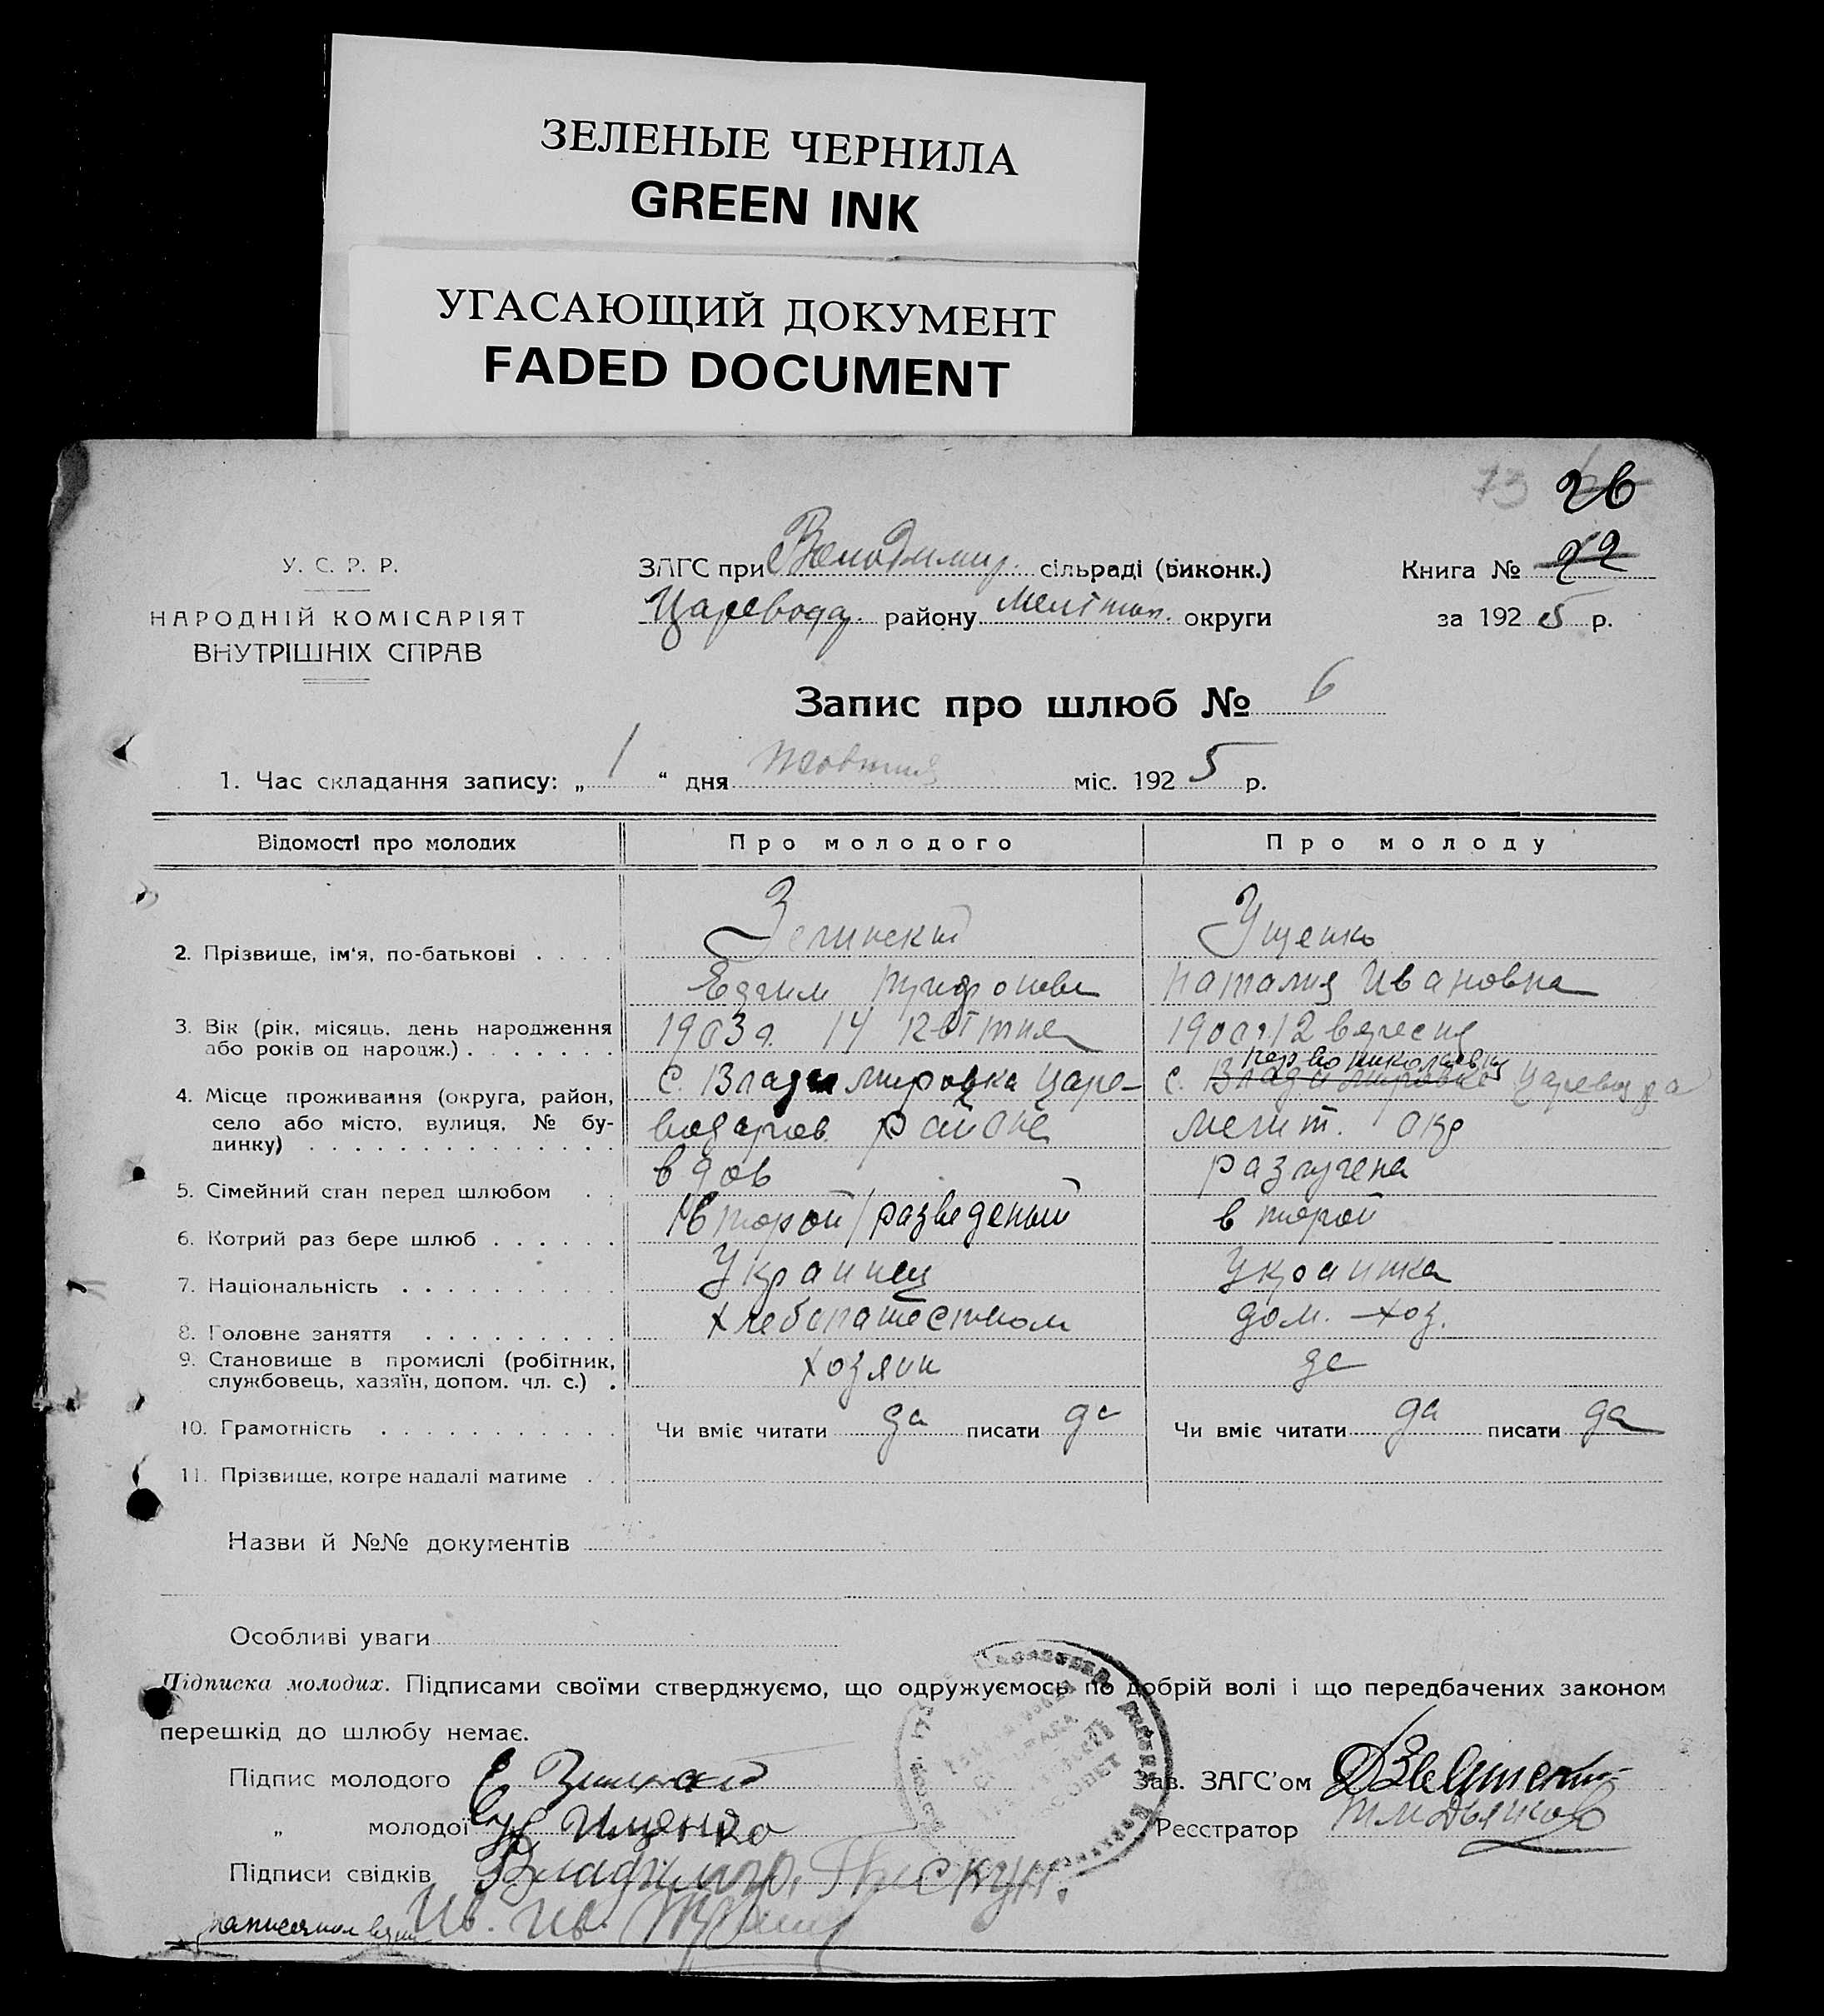 ЗЕЛЕНЫЕ ЧЕРНИЛА
GREEN INK
УГАСАЮЩИЙ ДОКУМЕНТ
FADED DOCUMENT
73 26
У. С. Р. Р.
НАРОДНІЙ КОМІСАРІЯТ
ВНУТРІШНІХ СПРАВ
ЗАГС при Володимир. сільраді (виконк.)
Царевода. району Мелітоп. округи
Книга № 22
за 1925 р.
Запис про шлюб № 6
1. Час складання запису: „ 1 “ дня жовтня міс. 1925 р.
Відомості про молодих Про молодого Про молоду
2. Прізвище, ім'я, по-батькові . . . . Зелинский Ущенко
Ефим Наталия Ивановна
3. Вік (рік, місяць, день народження
або років од народж.) . . . . . . . 1903 г. 14 1900 г. 12 вересня
4. Місце проживання (округа, район,
село або місто, вулиця, № бу-
динку) . . . . . . . . . . . . . .
с. Владимировка Царе-
водаров. района
Перво николаевка
с. Владимировка Царевода
мелит. окр
5. Сімейний стан перед шлюбом . . вдов разлучена
6. Котрий раз бере шлюб . . . . . . Второй / разведеный второй
7. Національність . . . . . . . . . . Украинец Украинка
8. Головне заняття . . . . . . . . . хлебопашеством дом. хоз.
9. Становище в промислі (робітник,
службовець, хазяїн, допом. чл. с.) . хозяин
10. Грамотність . . . . . . . . . . . Чи вміє читати да писати да Чи вміє читати да писати да
11. Прізвище, котре надалі матиме . .
Назви й №№ документів
Особливі уваги
Підписка молодих. Підписами своїми стверджуємо, що одружуємось по добрій волі і що передбачених законом
перешкід до шлюбу немає.
Підпис молодого Е Зелинский
„ молодої
Підписи свідків Владимир. Пискун.
Ив. Ив.
Зав. ЗАГС'ом
Реєстратор